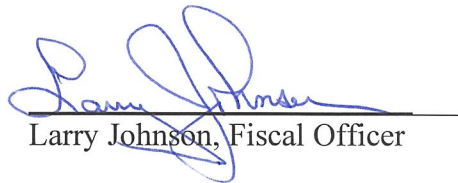 Larry Johnson
Larry Johnson, Fiscal Officer